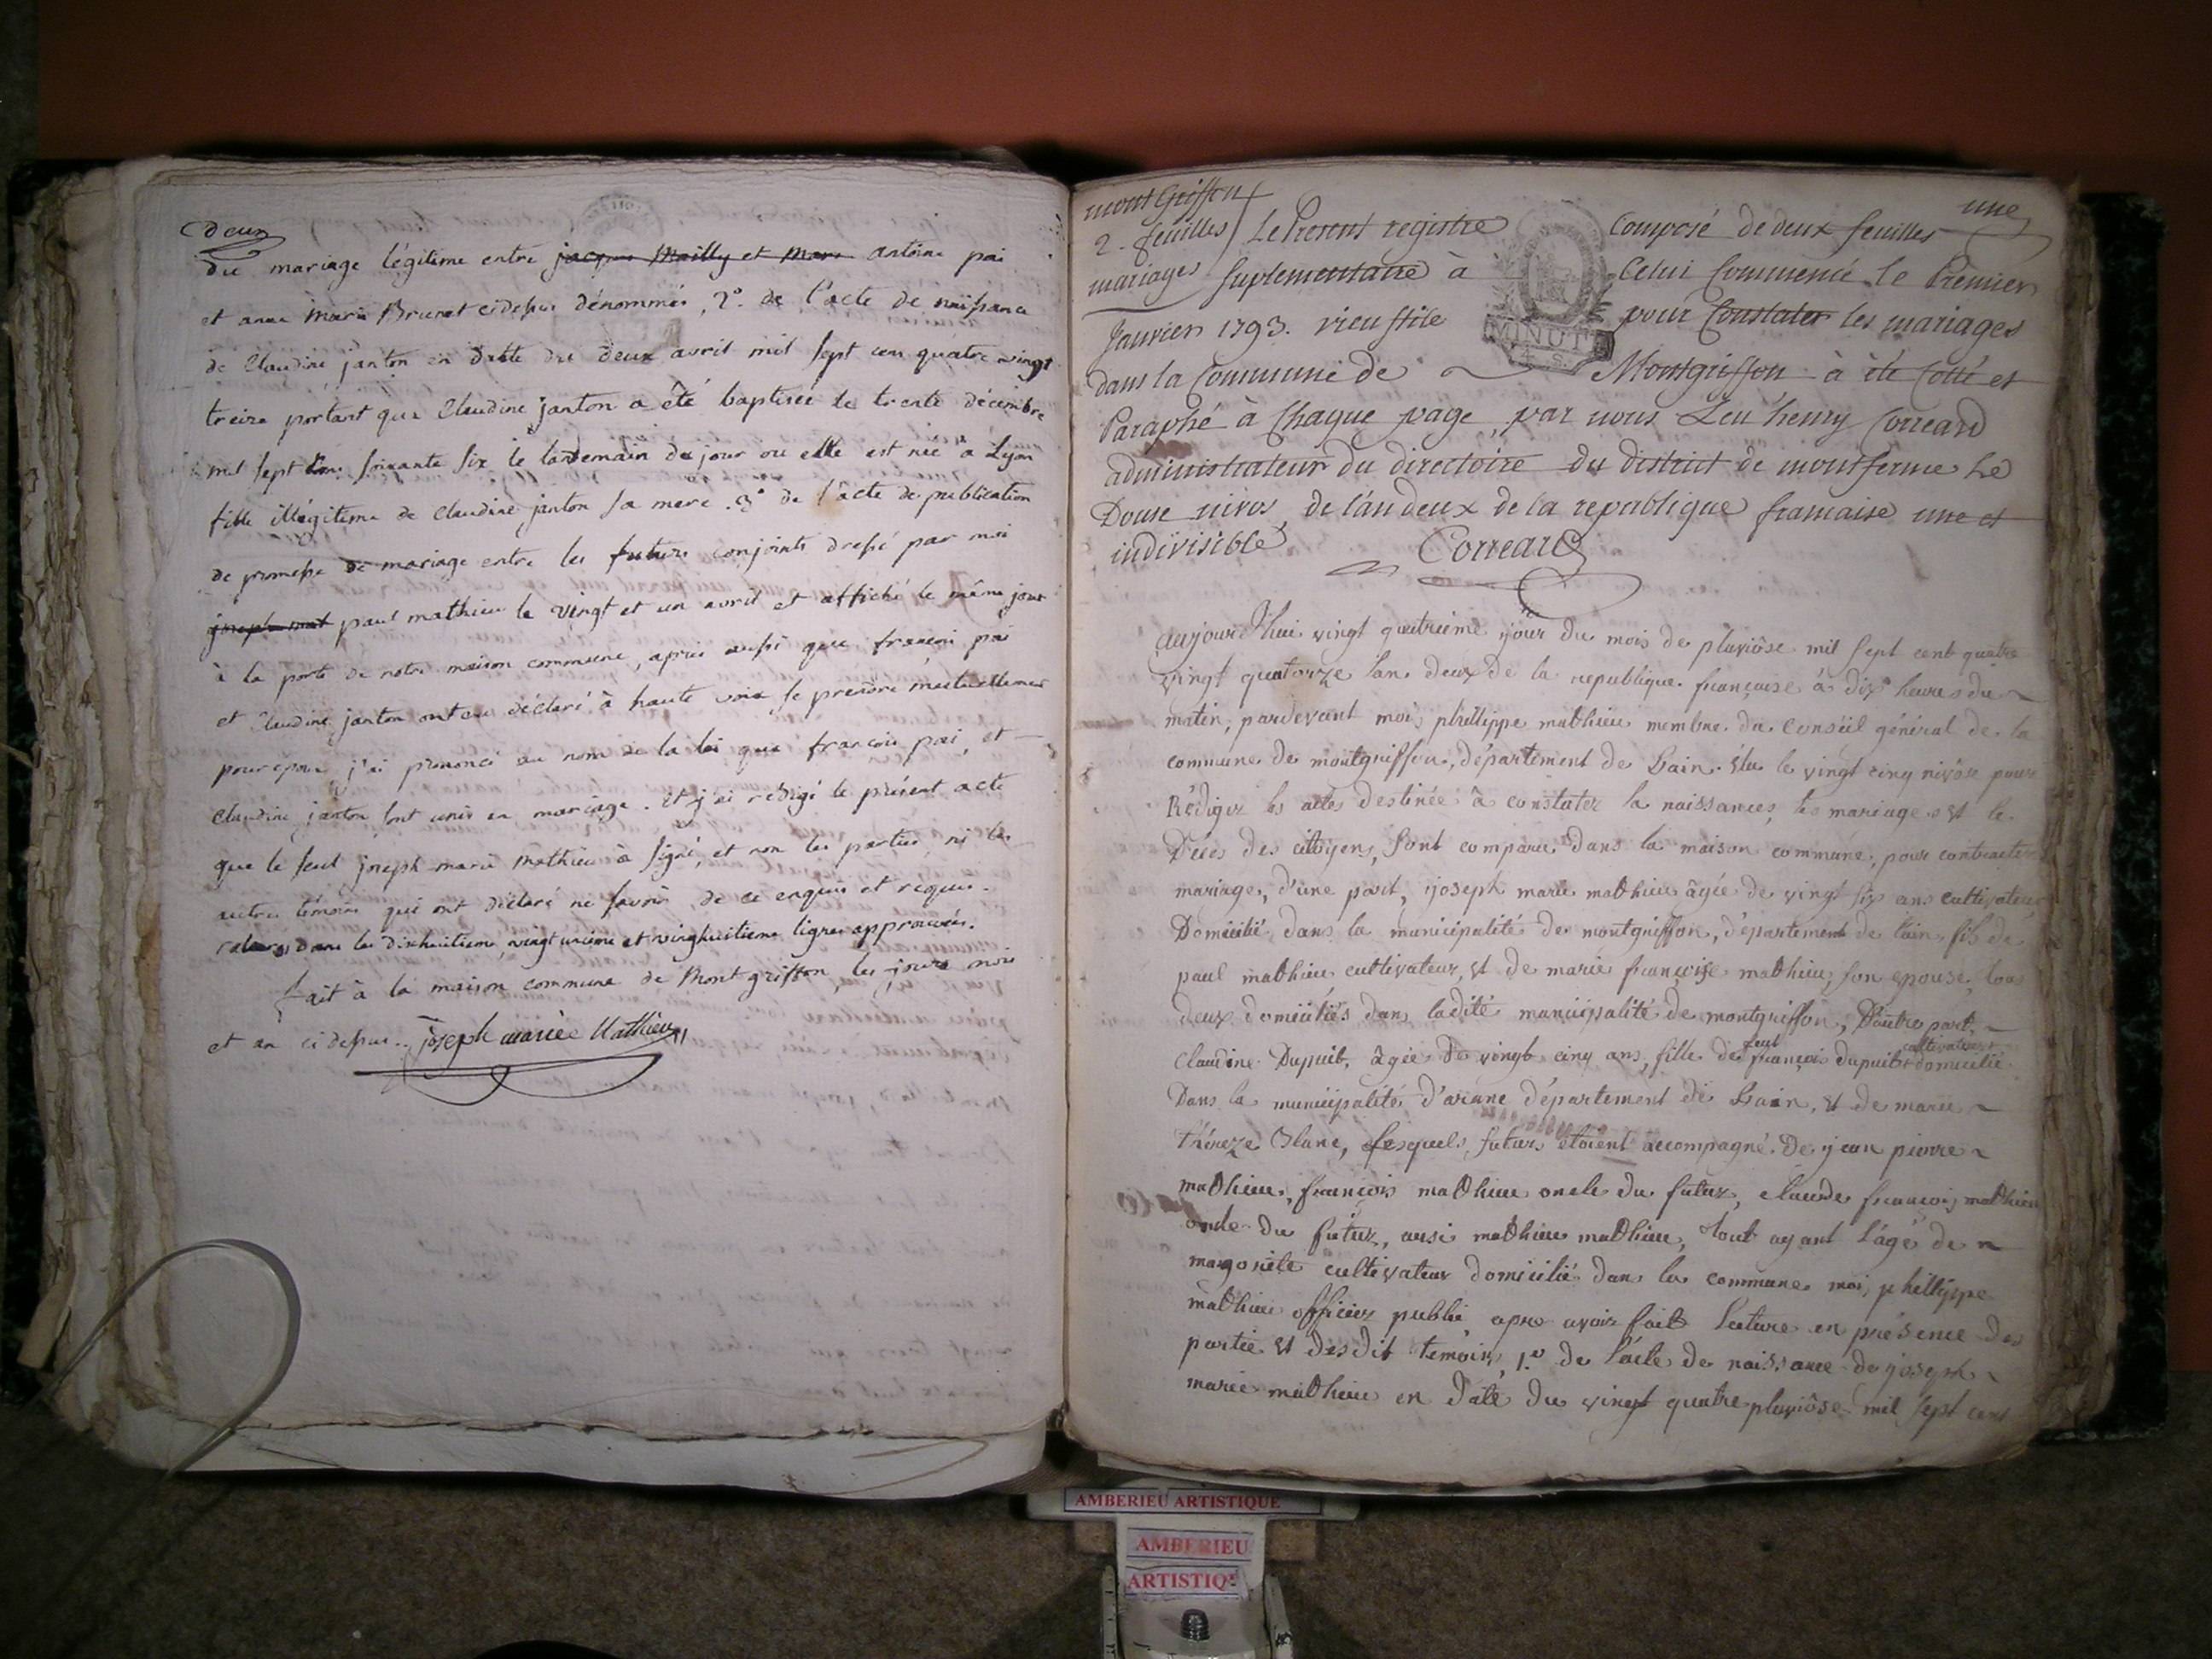 deux
du mariage légitime entre jacques Mailly et Marie antoine pai
et anne Marie Brunet cidessus dénommés, 2° de l'acte de naissance
de Claudine janton en datte du deux avril mil sept cen quatre vingt
treize portant que Claudine janton a été baptisée le trente décembre
mil sept cens soixante six le landemain du jour ou elle est née à Lyon
fille illégitime de Claudine janton sa mere. 3° de l'acte de publication
de promesse de mariage entre les futurs conjoints dressé par moi
joseph mat paul mathieu le vingt et un avril et affiché le même jour
à la porte de notre maison commune, apries aussi que françoi pai
et Claudine janton ont eu déclaré à haute voix se prendre mutuellement
pour epoux j'ai prononcé au nom de la loi que françois pai, et
Claudine janton sont unis en mariage. Et j'ai redigé le présent acte
que le seul joseph marie Mathieu à signé, et non les parties ni les
autres témoins qui ont déclaré ne savoir de ce enquis et requis.
dans les dixhuitiem, vingt unieme et vinghuitieme lignes approuvées.
fait à la maison commune de Montgriffon, les jours mois
et an ci dessus. joseph mariee Mathieu
montGriffon
2. feuilles
mariages
une
Le Present registre Composé de deux feuilles
suplementaire à Celui Commencé le Premier
Janvier 1793. vieu stile pour Constater les mariages
MINUT
4. S.
dans la Commune de Montgriffon à été Cotté et
Paraphé à Chaque page, par nous Leu henry Correard
administrateur du directoire du district de montferme Le
Douse nivos, de l'an deux de la republique framaise une et
indivisible Correard
aujourd'hui vingt quatrieme jour du mois de pluviôse mil sept cent quatre
vingt quatorze l'an deux de la republique française à dix heures du
matin, pardevant moi, phillippe mathieu membre du conseil général de la
commune de montgriffon, département de Lain. élu le vingt cinq nivôse pour
Rédiger les actes destinée à constater la naissances, les mariages et le
Décés des citoyens, sont comparu dans la maison commune, pour contracter
mariage, d'une part, joseph marie mathieu âgée de vingt six ans cultivateur
Domicilié dans la municipalité de montgriffon, département de lain, fils de
paul mathieu cultivateur, et de marie françoise mathieu, son epouse, tous
deux domiciliés dans ladite municipalité de montgriffon, D'autre part,
Claudine Dupuit, âgée de vingt cinq ans, fille de feut françois dupuit cultivateur domicilié
Dans la municipalité d'arane département de Lain, et de marie
thérèze Blanc, lesquels, futurs étoient accompagné de jean pierre
mathieu, françois mathieu oncle du futur, claude françois mathieu
oncle du futur, ausi mathieu mathieu, tout ayant l'âge de
magorite cultivateur domicilié dans la commune, moi, phillippe
mathieu officier public apre avoir fait lecture en présence des
partie et desdit temoins, 1.° de l'acte de naissance de joseph
marie mathieu en date du vingt quatre pluviôse mil sept cent
AMBERIEU ARTISTIQUE
AMBERIEU
ARTISTIQUE